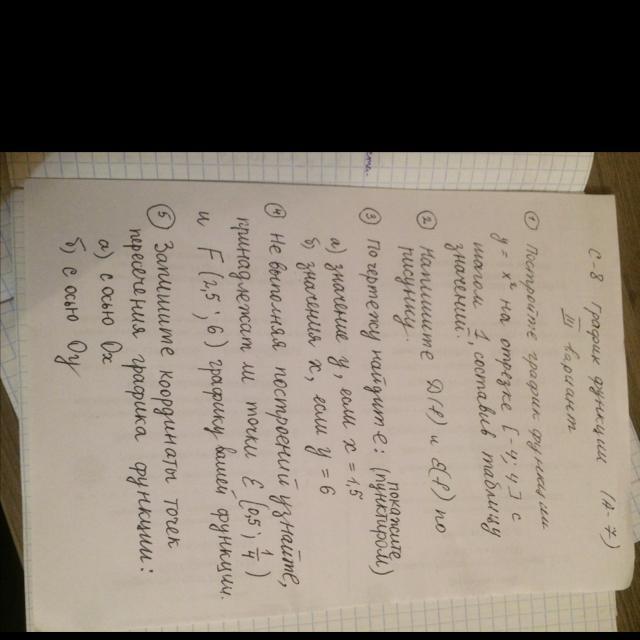 С-8 График функции (А-7)
III вариант
① Постройте график функции
y = x² на отрезке [-4; 4] с
шагом 1, составив таблицу
значений.
② Напишите D(f) и E(f) по
рисунку.
③ По чертежу найдите: (покажите пунктиром)
а) значение y, если x = 1,5
б) значения x, если y = 6
④ Не выполняя построений узнайте,
принадлежат ли точки E (0,5; 1/4)
и F (2,5; 6) графику вашей функции.
⑤ Запишите координаты точек
пересечения графика функции:
а) с осью Ox
б) с осью Oy